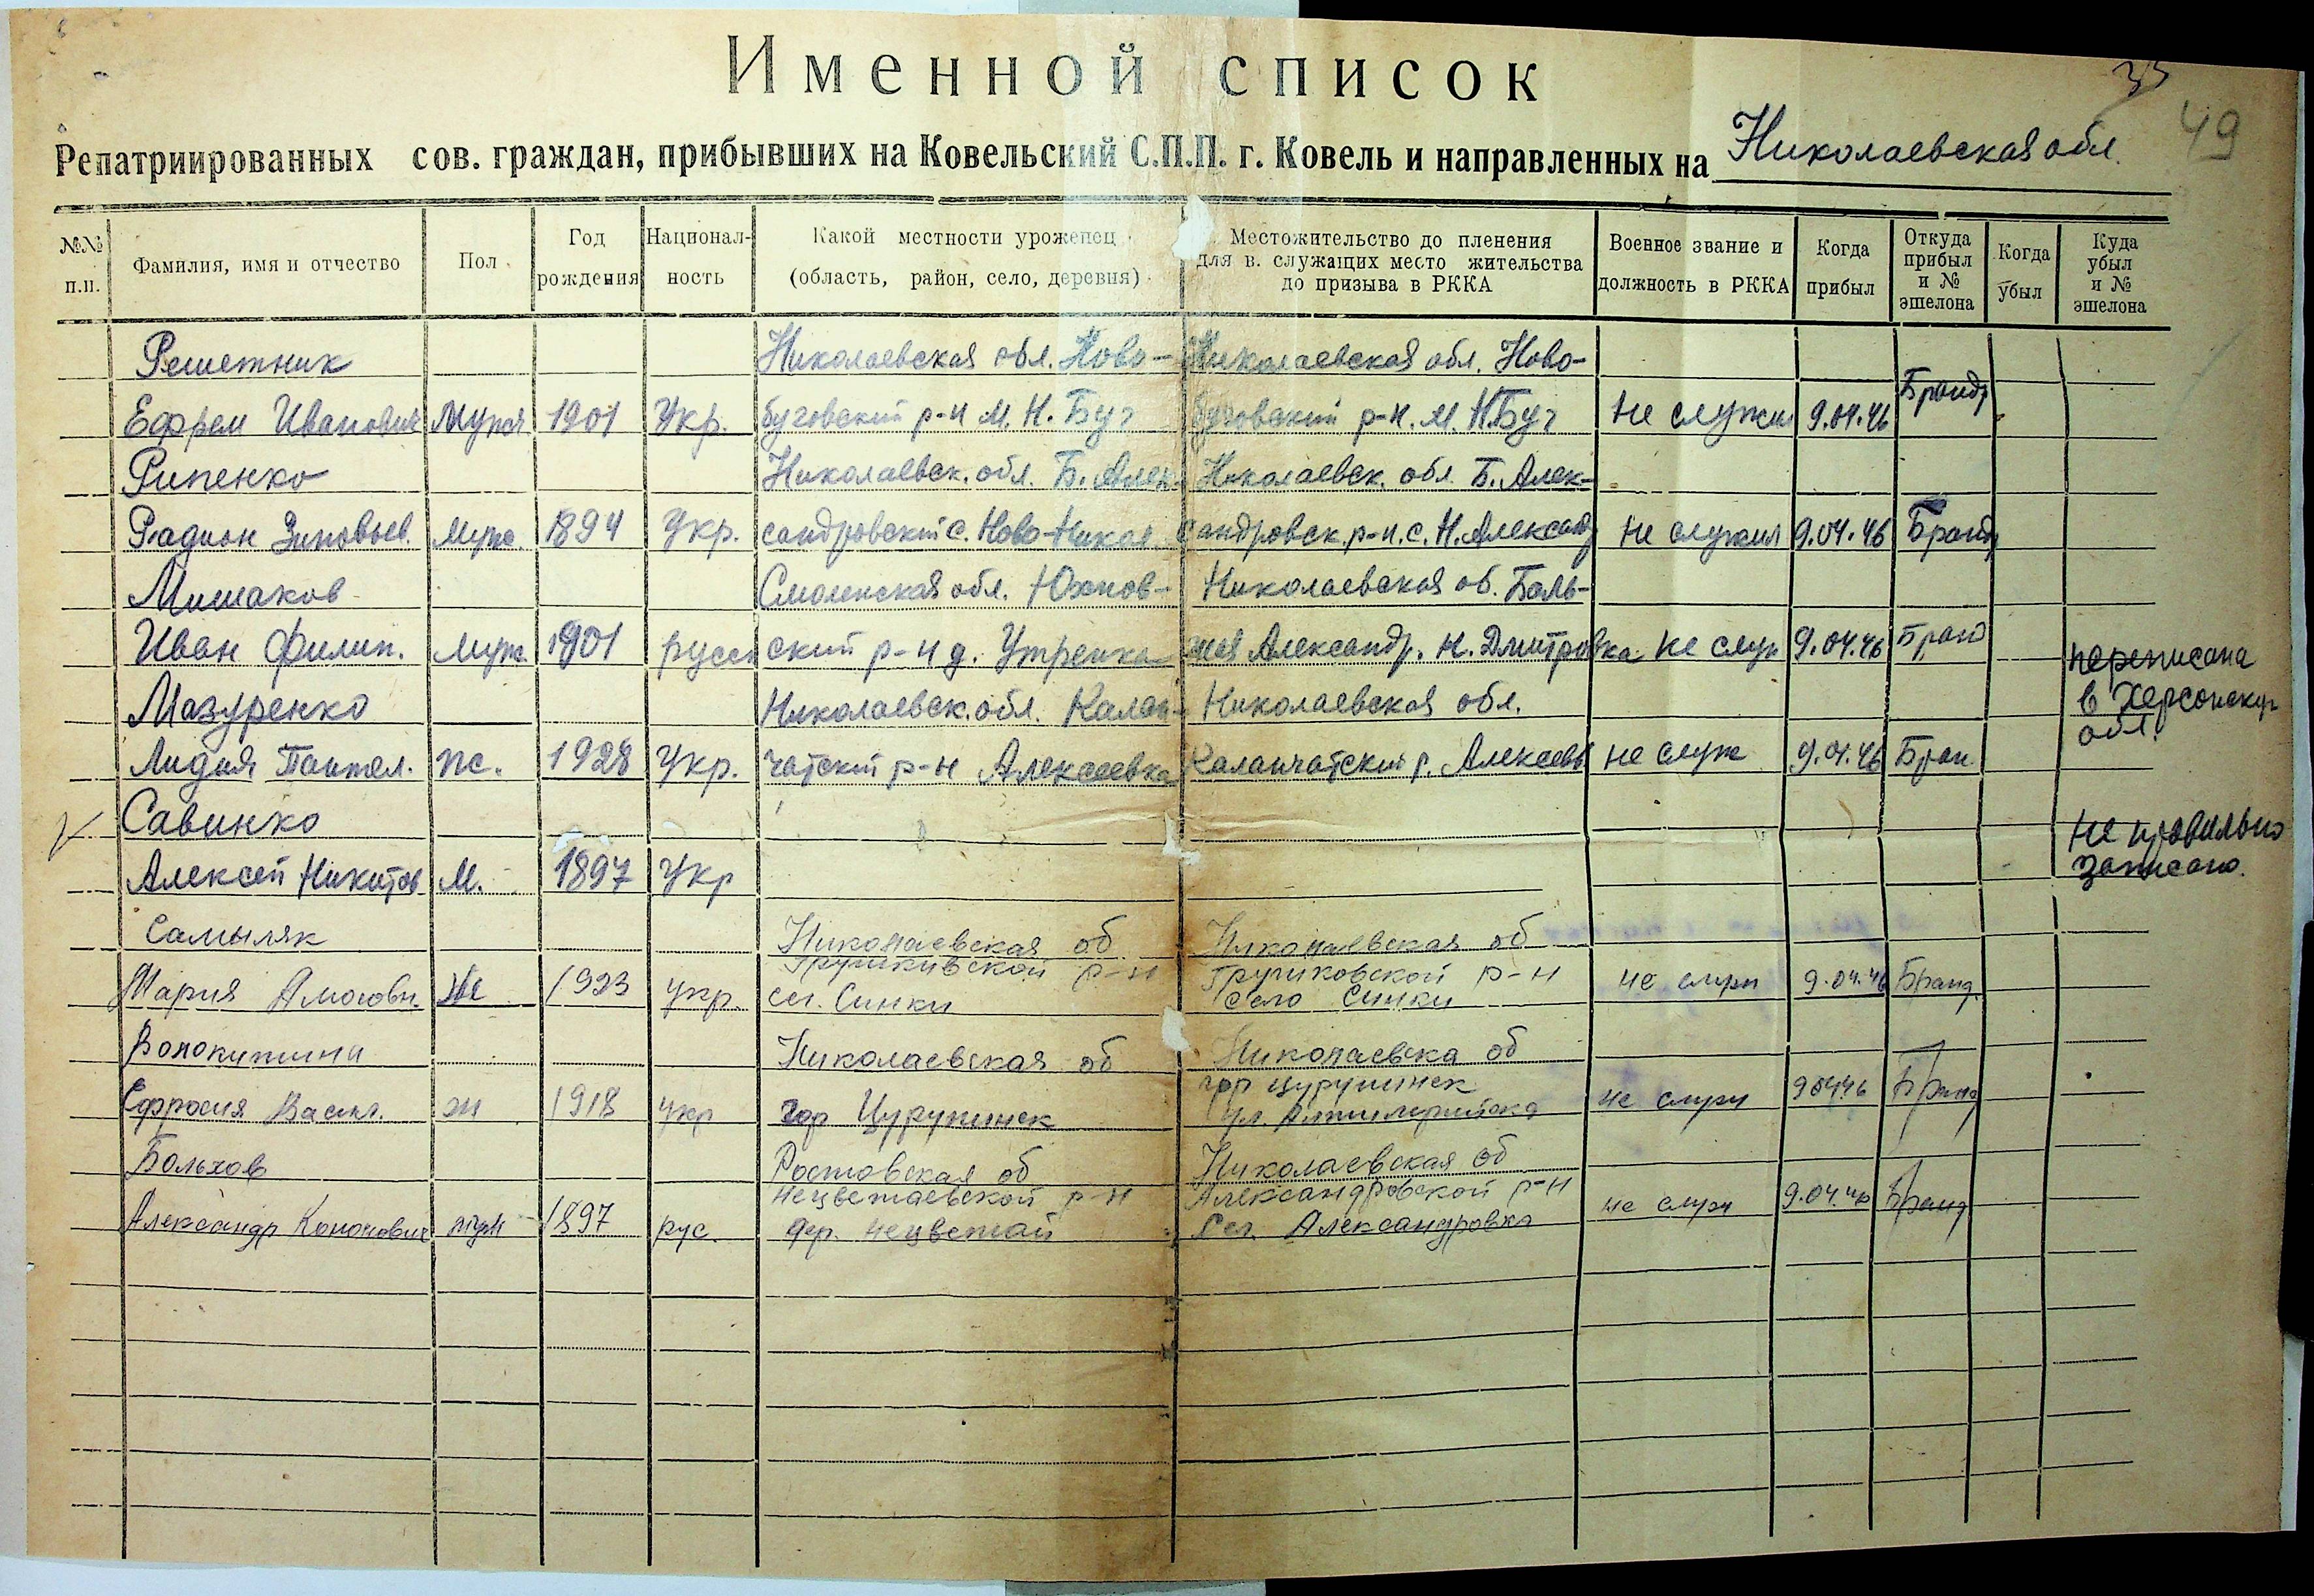 33
49
Именной список
Репатриированных сов. граждан, прибывших на Ковельский С.П.П. г. Ковель и направленных на Николаевская обл.
№№ п.п. Фамилия, имя и отчество Пол Год рождения Национальность Какой местности уроженец (область, район, село, деревня) Местожительство до пленения для в. служащих место жительства до призыва в РККА Военное звание и должность в РККА Когда прибыл Откуда прибыл и № эшелона Когда убыл Куда убыл и № эшелона
Решетник Николаевская обл. Ново- Николаевская обл. Ново-
Ефрем Иванович Муж. 1901 Укр. буговский р-н м. Н. Буг буговский р-н. м. Н.Буг не служил 9.04.46 Бранд
Рипенко Николаевск. обл. Б. Алек- Николаевск. обл. Б. Алек-
Радион Зиновьев. Муж. 1894 Укр. сандровский с. Ново-Никол. сандровск. р-н. с. Н. Александ не служил 9.04.46 Бранд
Мишаков Смоленская обл. Юхнов- Николаевская об. Боль-
Иван Филип. Муж. 1901 русск ский р-н д. Утренка шая Александр. Н. Дмитровка не служ 9.04.46 Бранд переписана
Мазуренко Николаевск. обл. Калан- Николаевская обл. в Херсонскую
обл.
Лидия Пантел. ж. 1928 Укр. чатский р-н Алексеевка Каланчатский р. Алексеевк не служ 9.04.46 Бран
Савинко не правильно
Алексей Никитов М. 1897 Укр записано.
Самыляк Николаевская об Николаевская об
р-н р-н
Мария же 1923 укр. сел. Синки село Синки не служ 9.04.46 Бранд.
Волокитина Николаевская об Николаевска об
гор Цурупинск
Ефросия Васил. ж 1918 укр гор Цурупинск ул. не служ 90446 Бранд
Больхов Ростовская об Николаевская об
Нецветаевской р-н Александровской р-н
Александр Кононович муж 1897 рус. дер. Нецветай Сел. Александровка не служ 9.04.46 Бранд